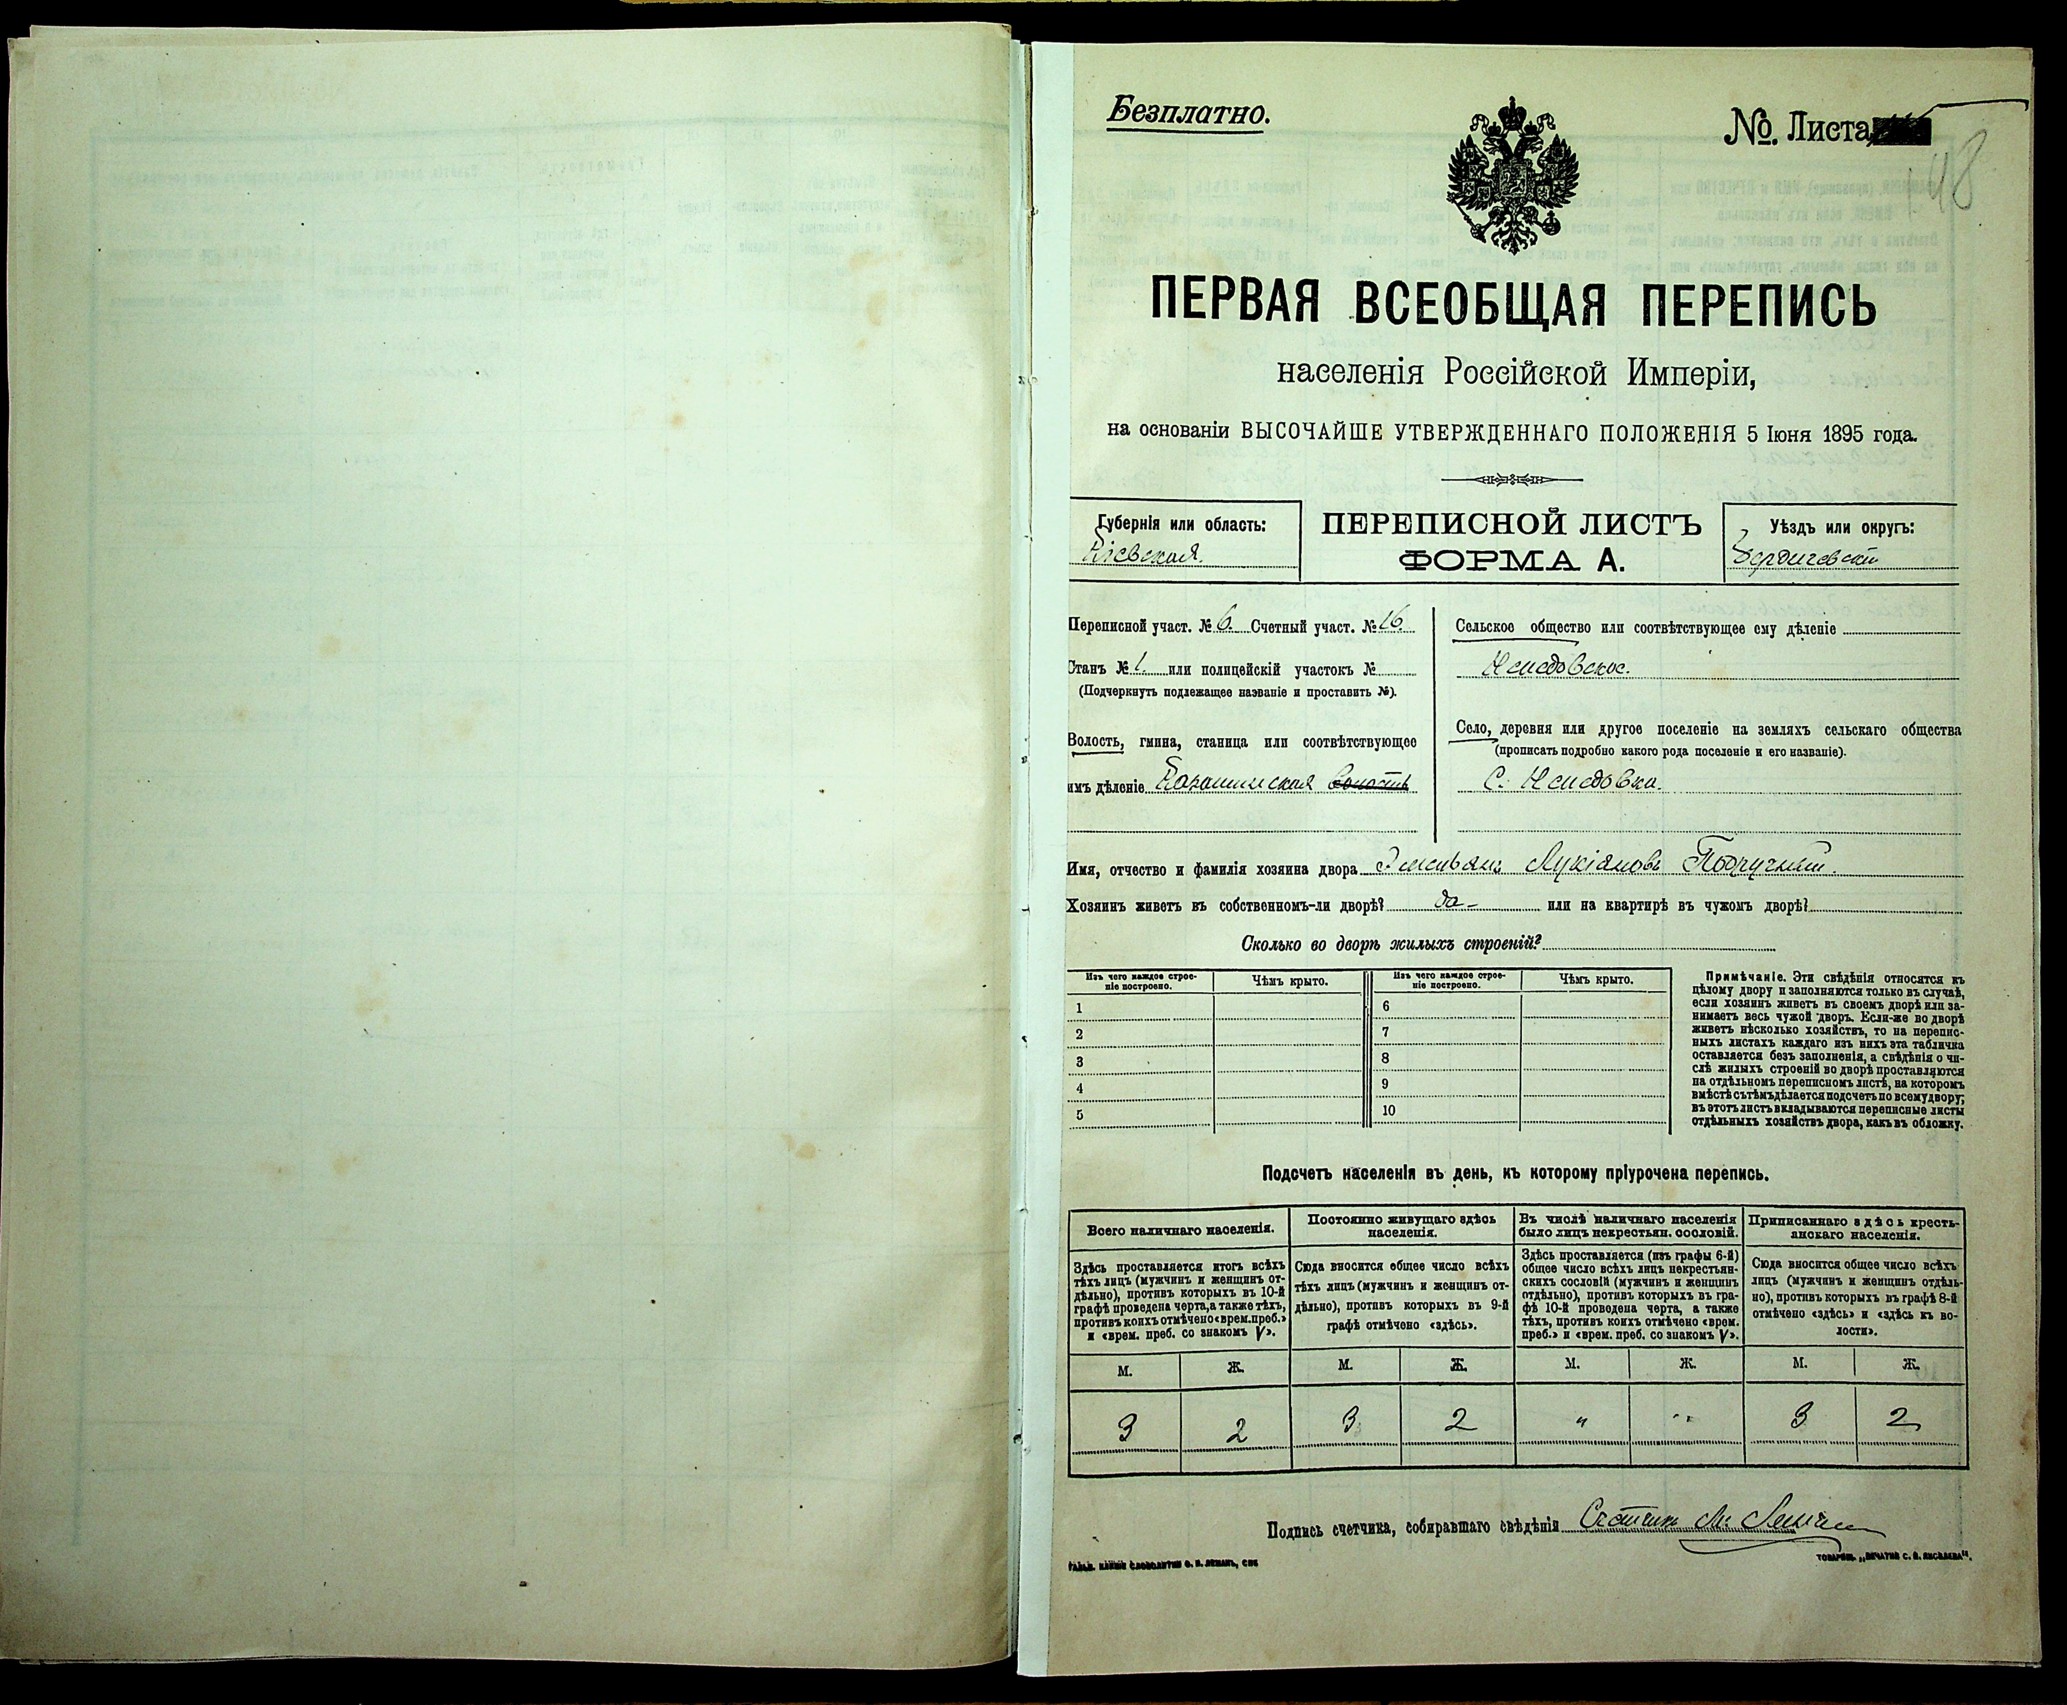 Безплатно.
№. Листа
48
ПЕРВАЯ ВСЕОБЩАЯ ПЕРЕПИСЬ
населенія Россійской Имперіи,
на основаніи ВЫСОЧАЙШЕ УТВЕРЖДЕННАГО ПОЛОЖЕНІЯ 5 Іюня 1895 года.
Губернія или область:
Кіевская.
ПЕРЕПИСНОЙ ЛИСТЪ
ФОРМА А.
Уѣздъ или округъ:
Бердичевскій
Переписной участ. № 6. Счетный участ. № 16.
Станъ № 1. или полицейскій участокъ №
(Подчеркнуть подлежащее названіе и проставить №).
Волость, гмина, станица или соотвѣтствующее
имъ дѣленіе
Сельское общество или соотвѣтствующее ему дѣленіе
Село, деревня или другое поселеніе на земляхъ сельскаго общества
(прописать подробно какого рода поселеніе и его названіе).
С.
Имя, отчество и фамилія хозяина двора Лукіановъ
Хозяинъ живетъ въ собственномъ-ли дворѣ? да - или на квартирѣ въ чужомъ дворѣ?
Сколько во дворѣ жилыхъ строеній?
Изъ чего каждое строе-
ніе построено.
Чѣмъ крыто.
Изъ чего каждое строе-
ніе построено.
Чѣмъ крыто.
1 6
2 7
3 8
4 9
5 10
Примѣчаніе. Эти свѣдѣнія относятся къ
цѣлому двору и заполняются только въ случаѣ,
если хозяинъ живетъ въ своемъ дворѣ или за-
нимаетъ весь чужой дворъ. Если-же во дворѣ
живетъ нѣсколько хозяйствъ, то на перепис-
ныхъ листахъ каждаго изъ нихъ эта табличка
оставляется безъ заполненія, а свѣдѣнія о чи-
слѣ жилыхъ строеній во дворѣ проставляются
на отдѣльномъ переписномъ листѣ, на которомъ
вмѣстѣ съ тѣмъ дѣлается подсчетъ по всему двору;
въ этотъ листъ вкладываются переписные листы
отдѣльныхъ хозяйствъ двора, какъ въ обложку.
Подсчетъ населенія въ день, къ которому пріурочена перепись.
Всего наличнаго населенія.
Постоянно живущаго здѣсь
населенія.
Въ числѣ наличнаго населенія
было лицъ некрестьян. сословій.
Приписаннаго здѣсь кресть-
янскаго населенія.
Здѣсь проставляется итогъ всѣхъ
тѣхъ лицъ (мужчинъ и женщинъ от-
дѣльно), противъ которыхъ въ 10-й
графѣ проведена черта, а также тѣхъ,
противъ коихъ отмѣчено «врем. преб.»
и «врем. преб. со знакомъ V».
Сюда вносится общее число всѣхъ
тѣхъ лицъ (мужчинъ и женщинъ от-
дѣльно), противъ которыхъ въ 9-й
графѣ отмѣчено «здѣсь».
Здѣсь проставляется (изъ графы 6-й)
общее число всѣхъ лицъ некрестьян-
скихъ сословій (мужчинъ и женщинъ
отдѣльно), противъ которыхъ въ гра-
фѣ 10-й проведена черта, а также
тѣхъ, противъ коихъ отмѣчено «врем.
преб.» и «врем. преб. со знакомъ V».
Сюда вносится общее число всѣхъ
лицъ (мужчинъ и женщинъ отдѣль-
но), противъ которыхъ въ графѣ 8-й
отмѣчено «здѣсь» и «здѣсь къ во-
лости».
М. Ж. М. Ж. М. Ж. М. Ж.
3 2 3 2 " " 3 2
Подпись счетчика, собиравшаго свѣдѣнія Счетчикъ